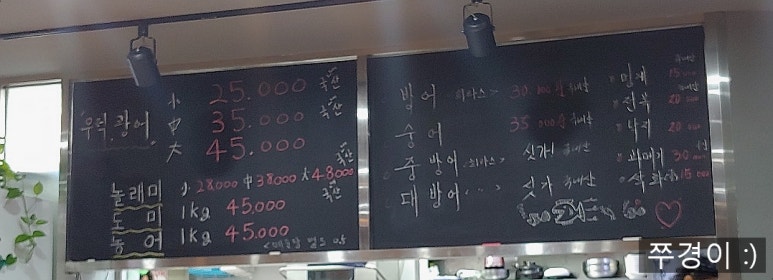 小 25.000 국산
우럭, 광어 中 35.000 국산
大 45.000
놀래미 小 28000 中 38000 大 48000 국산
도미 1kg 45.000 국산
농어 1kg 45.000
방어 30.000
숭어 35.000
중방어 싯가
대방어 싯가 국내산
멍게 15
전복 20
낙지 20.000
과메기 30
석화 15.000
쭈경이 :)